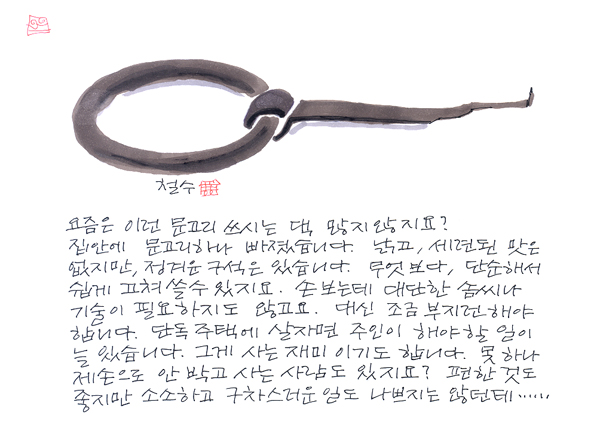 철수
요즘은 이런 문고리 쓰시는 댁, 많지않지요?
집안에 문고리하나 빠졌습니다. 낡고, 세련된 맛은
없지만, 정겨운 구석은 있습니다. 무엇보다, 단순해서
쉽게 고쳐 쓸 수 있지요. 손 보는데 대단한 솜씨나
기술이 필요하지도 않고요. 대신 조금 부지런해야
합니다. 단독주택에 살자면 주인이 해야할 일이
늘 있습니다. 그게 사는 재미이기도 합니다. 못 하나
제손으로 안 박고 사는 사람도 있지요? 편한 것도
좋지만 소소하고 구차스러운 일도 나쁘지는 않던데……